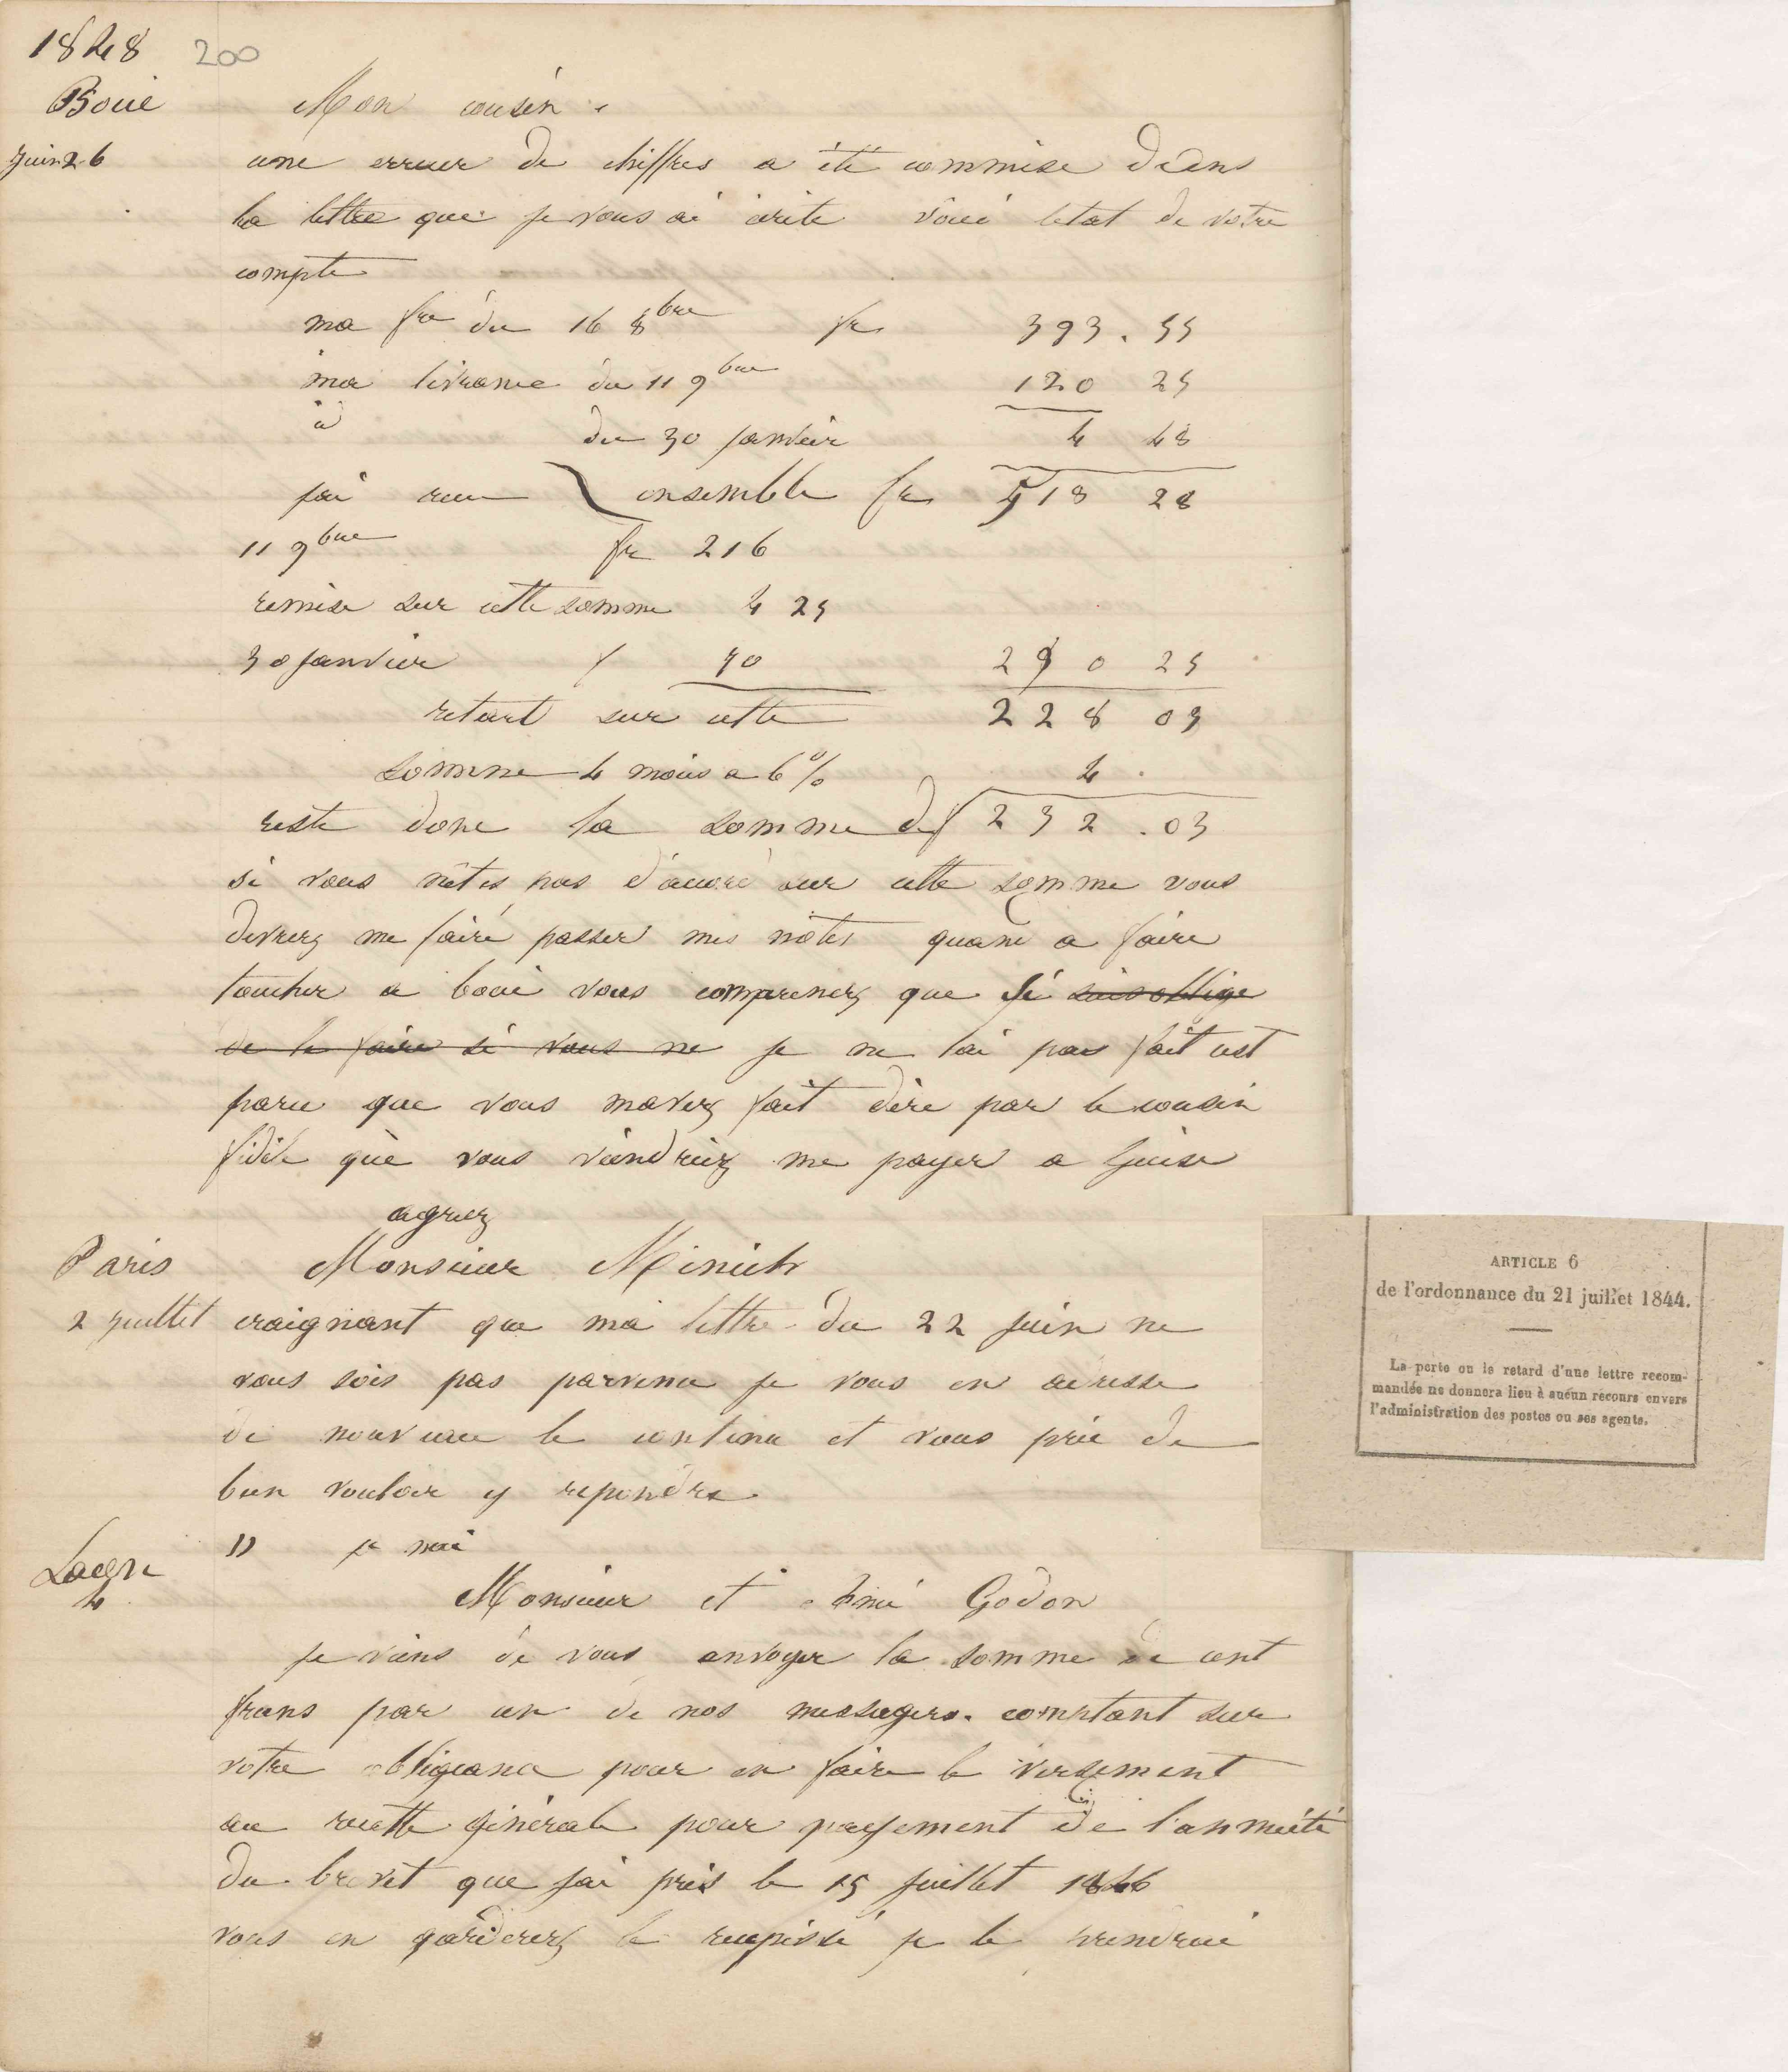 1848 200
Boué
Juin 26
Mon cousin.
une erreur de chiffres a été commise dans
la lettre que je vous ai écrite voici létat de votre
compte
ma fre du 16 8bre fr 393.55
ma livrance du 11 9bre 120 25
id du 30 janvier 4 48
jai recu ensemble fr 518 28
11 9bre fr 216
remise sur cette somme 4 25
30 janvier f 70 290 25
retart sur cette 228 03
somme 4 mois a 6% 4.
reste donc la somme de f 232.03
si vous nêtes pas d'accord sur cette somme vous
devrez me faire passer mes notes quand a faire
toucher a boué vous comprenez que si suis obligé
de le faire si vous ne je ne lai pas fait cest
parce que vous mavez fait dire par le cousin
fidèle que vous viendriez me payer a Guise
agreez
Paris
2 juillet
Monsieur Minich
craignant que ma lettre du 22 juin ne
vous sois pas parvenu je vous en adresse
de nouveau le contenu et vous prie de
bien vouloir y repondre
" je nai
Laon
4
Monsieur et ami Godon
je viens de vous envoyer la somme de cent
frans par un de nos messagers. comptant sur
votre obligeance pour en faire le versement
au recette générale pour payement de l'annuité
du brevet que jai pris le 15 juillet 1846
vous en garderez le recepissé je le prendrai
ARTICLE 6
de l'ordonnance du 21 juillet 1844.
La perte ou le retard d'une lettre recom-
mandée ne donnera lieu à aucun recours envers
l'administration des postes ou ses agents.